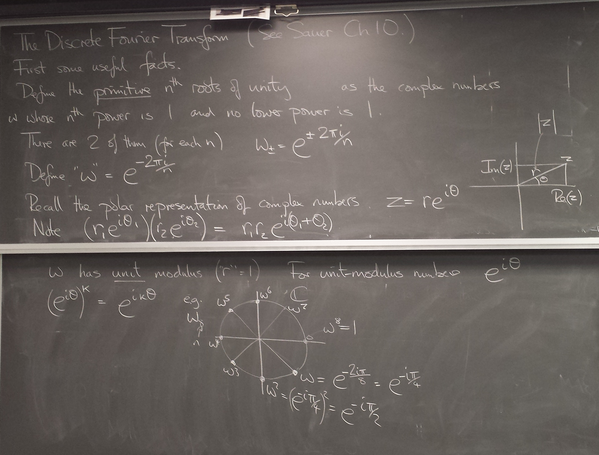 The Discrete Fourier Transform (see Sauer Ch 10.)
First some useful facts.
Define the primitive nth roots of unity as the complex numbers
w whose nth power is 1 and no lower power is 1.
There are 2 of them (for each n) w± = e^{±2πi/n}
Define "w" = e^{-2πi/n}
|z|
Im(z) r z
θ
Re(z)
Recall the polar representation of complex numbers z = re^{iθ}
Note (r₁e^{iθ₁})(r₂e^{iθ₂}) = r₁r₂e^{i(θ₁+θ₂)}
w has unit modulus ("r"=1) For unit-modulus numbers e^{iθ}
(e^{iθ})^k = e^{ikθ}
e.g. w⁵ w⁶ ℂ
w⁸=1
w³
w = e^{-2iπ/8} = e^{-iπ/4}
w² = (e^{iπ/4})² = e^{-iπ/2}